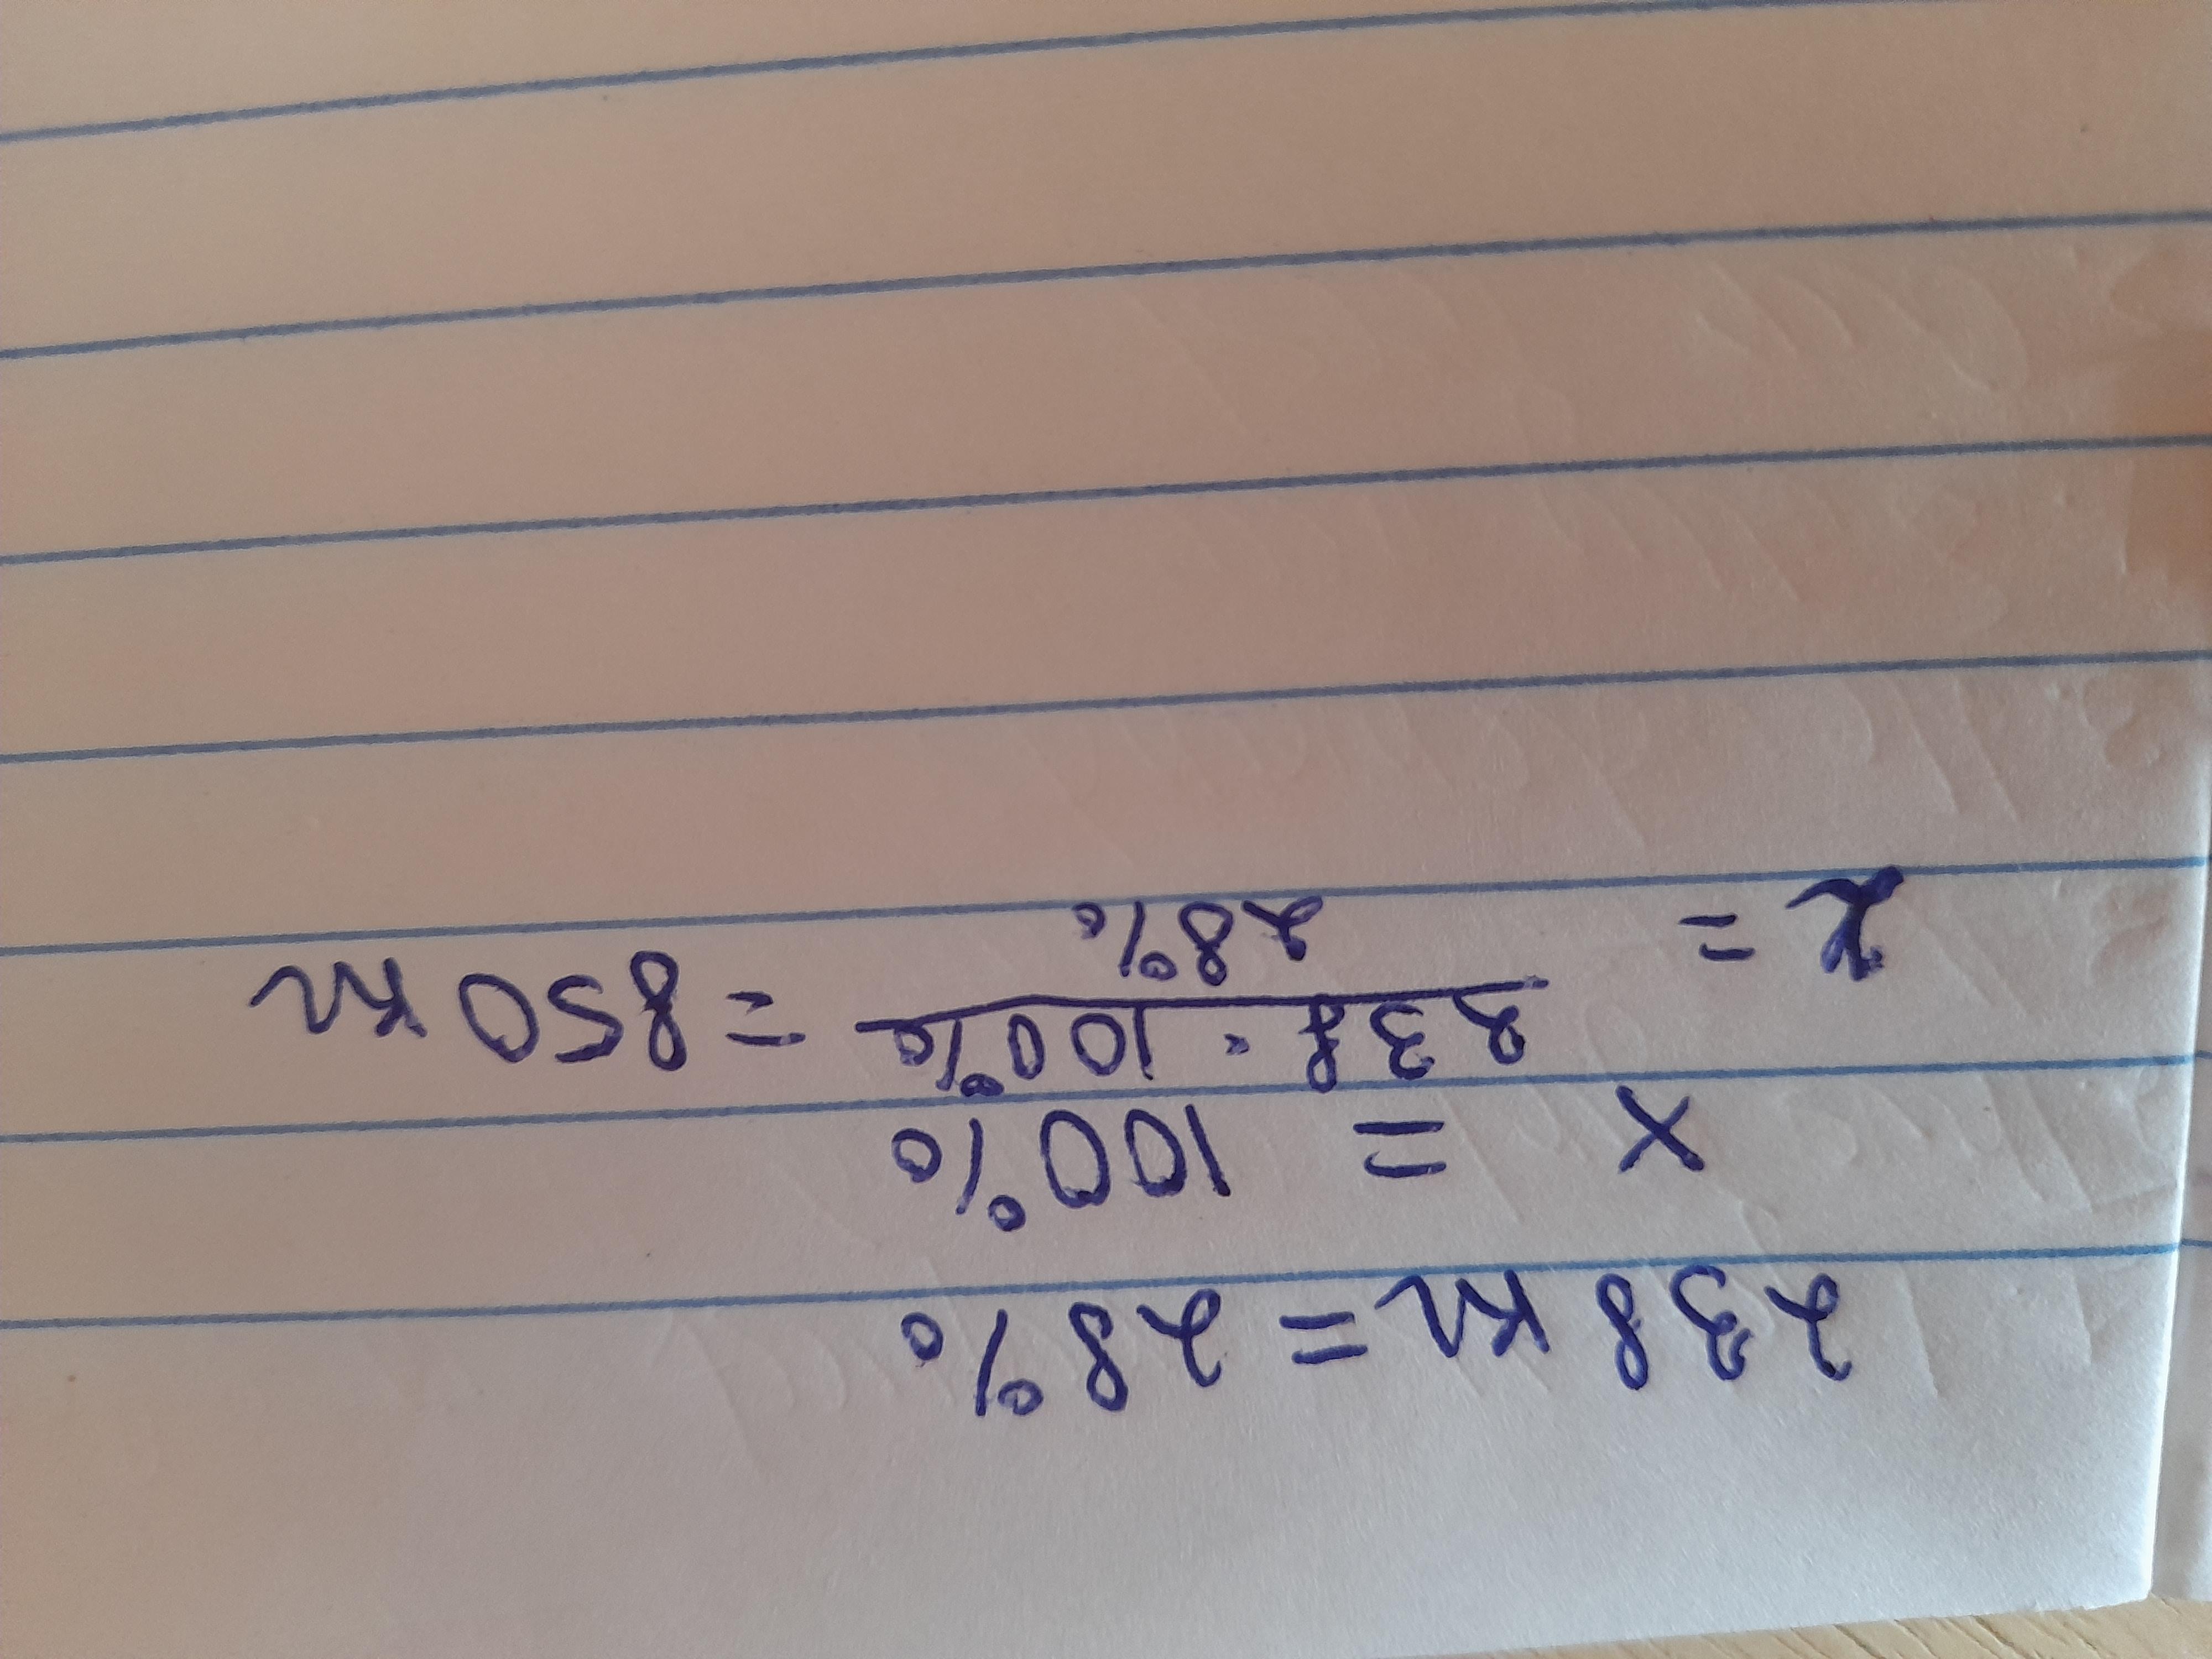 238 км = 28%
x = 100%
x = 238 · 100% / 28% = 850 км